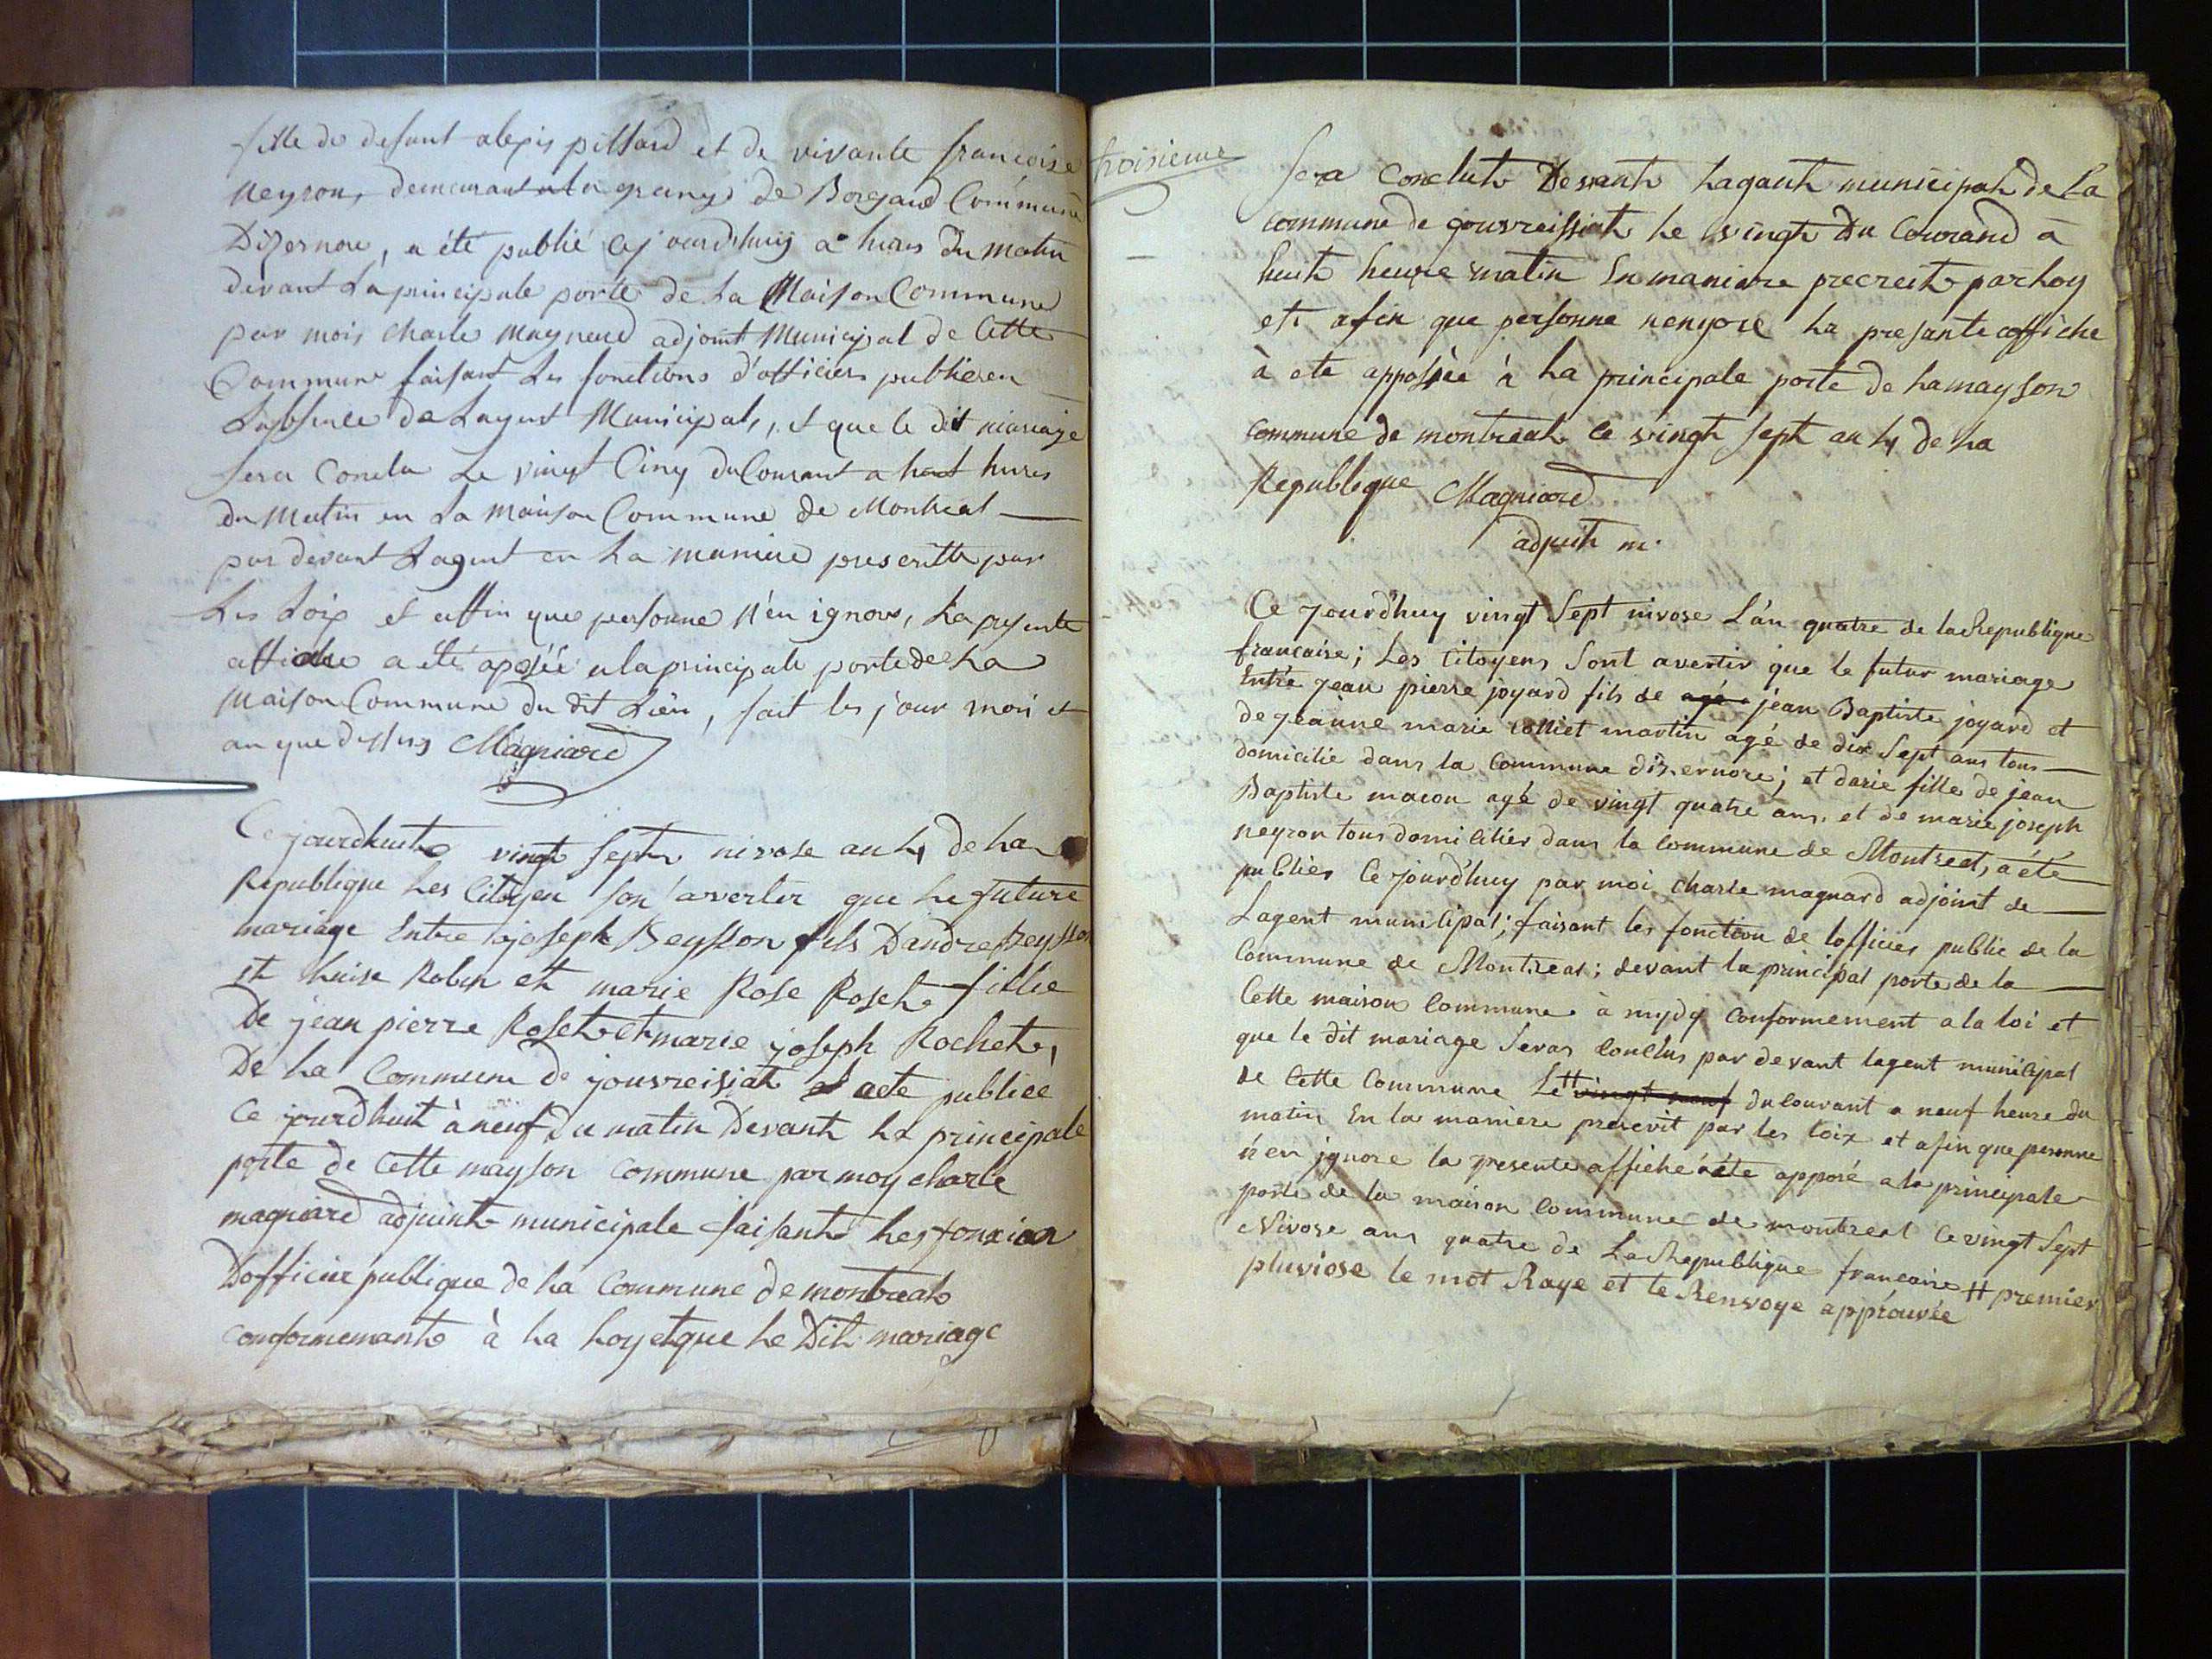 fille de defunt alexis pillard et de vivante francoise
neyron, demeurant a la grange de Bosgard Commune
Dizernore, a été publié cej ourd'huij a hures du matin
devant La principale porte de La Maison Commune
par mois Charle Magneard adjoint Municipal de Cette
Commune faisant Les fonctions d'officiers publier en
Labsence de Lagent Municipal, et que le dit mariage
sera Conclu Le vingt Cinq du Courant a huit hures
du Matin en La Maison Commune de Montreal
par devant Lagent en La maniere prescritte par
Les Loix et affin que personne n'en ignore, La presente
affiche a été aposée a la principale porte de La
Maison Commune du dit Lieu, fait les jour mois et
an que dessus Magniard
Ce jourdhuit vingt Sept nivose an 4 de La
Republique Les Citoyen son averter que Le future
mariage Entre joseph Beysson fils D'andre Beysson
et Luise Robin et marie Rose Roset fillie
De jean pierre Roset et marie joseph Rochet,
De La Commune de jouvreisiat a ete publiée
Ce jourdhuit à neuf du matin Devant La principale
porte de Cette mayson Commune par moy charle
magniard adjuint municipale faisant Les fonxion
Dofficier publique de La Commune de montreal
conformemant à La Loy et que Le Dit mariage
troisieme
Sera Conclut Devant Lagant municipal de La
commune de jouvreissiat Le vingt Du Courand à
huit heure matin En maniere precrest par Loy
et afin que personne nengore La presante affiche
à ete apposèe à La principale porte de La mayson
commune de montreal ce vingt Sept an 4 de La
Republique Magniard
adjuit m.
Ce jourd'huy vingt Sept nivose L'an quatre de la Republique
francaise; Les Citoyens Sont avertir que le futur mariage
Entre jean pierre joyard fils de agé jean Baptiste joyard et
de jeanne marie Colliet martin agé de dix Sept ans tous
domicilie dans la Commune dizernore; et darie fille de jean
Baptiste macon agé de vingt quatre ans. et de marie joseph
neyron tous domiciliér dans la Commune de Montreal, a été
publiér Ce jourd'huy par moi Charle magnard adjoint de
Lagent municipal; faisant les fonction de lofficier public de la
Commune de Montreal; devant la principal porte de la
Cette maison Commune à mydy Conformement a la loi et
que le dit mariage Seras Conclus par devant lagent municipal
de Cette Commune Le # vingt neuf du Courant a neuf heure du
matin En la maniere prescrit par les loix et afin que personne
n'en jgnore la presente affiche a été apposé a la principale
porte de la maison Commune de montreal Ce vingt Sept
Nivose ans quatre de La Republique francaise # premier
pluviose le mot Raye et le Renvoye approuvée